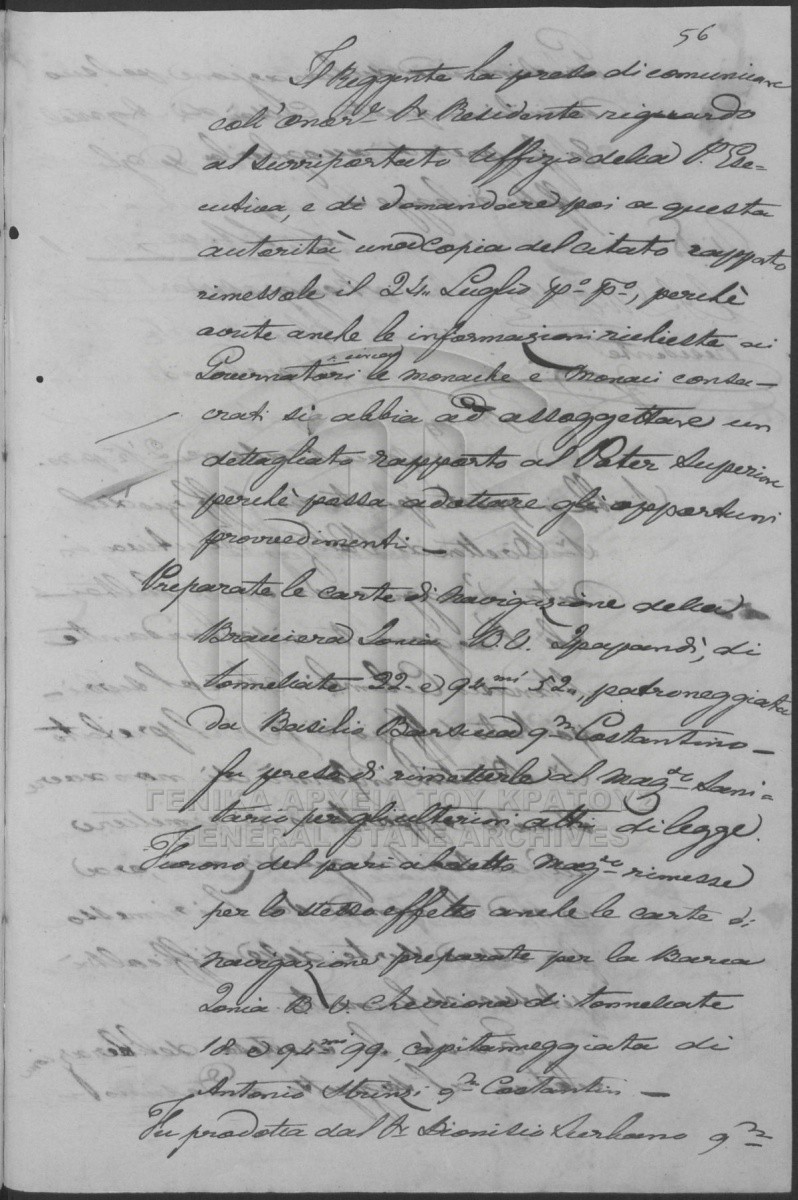 56
Il Reggente ha preso di comunicare
coll' Onor.e Sr Residente riguardo
al surriportato Uffizio della P. Ese-
cutiva, e di domandare poi a questa
autorità una copia del citato rapporto
rimessole il 24 Luglio po. po., perchè
avute anche le informazioni richieste ai
Governatori circa le monache e Monaci consa-
crati si abbia ad assoggettare un
dettagliato rapporto al Poter Superiore
perchè possa adottare gli opportuni
provvedimenti —
Preparate le carte di Navigazione della
Bracciera Ionia B. V. Ipapandì, di
tonnellate 22. e 94mi 52, patroneggiata
da Basilio qm Costantino —
fu preso di rimetterle al Magto Sani-
tario per gli ulteriori atti di legge.
Furono del pari al detto Magto rimesse
per lo stesso effetto anche le carte di
navigazione preparate per la Barca
Ionia B. V. di tonnellate
18 e 94mi 99. capitaneggiata di
Antonio qm Costantin —
Fu prodotta dal Sr Dionisio qm
ΓΕΝΙΚΑ ΑΡΧΕΙΑ ΤΟΥ ΚΡΑΤΟΥΣ
GENERAL STATE ARCHIVES